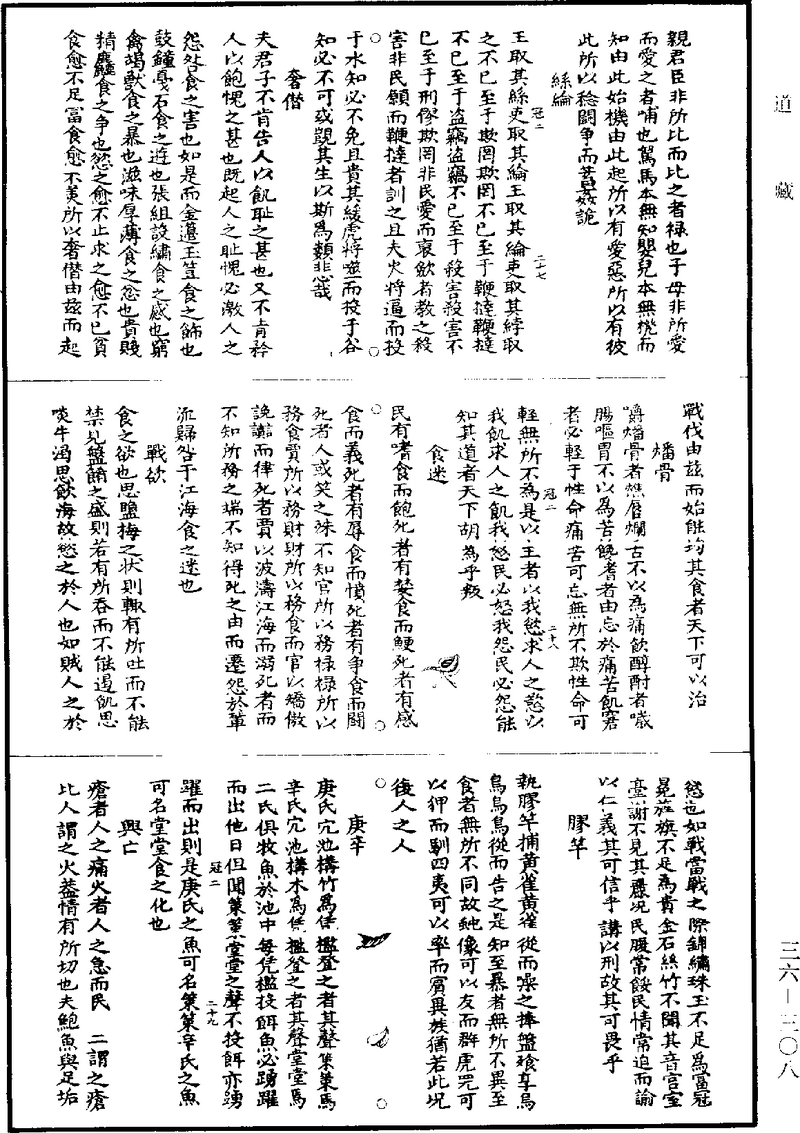 道藏
親君臣非所比而比之者禄也子母非所愛
而愛之者哺也駕馬本無知嬰兒本無機而
知由此始機由此起所以有愛惡所以有彼
此所以稔鬭争而蓄姦詭
絲綸
冠二
二十七
王取其絲吏取其綸王取其綸吏取其綍取
之不已至于欺罔欺罔不已至于鞭撻鞭撻
不已至于盗竊盗竊不已至于殺害殺害不
已至于刑僇欺罔非民愛而裒歛者教之殺
害非民願而鞭撻者訓之且夫火將逼而投
于水知必不免且貴其緩虎將噬而投于谷
知必不可或覬其生以斯為類非悲哉
奢僭
夫君子不肯告人以飢恥之甚也又不肯矜
人以飽愧之甚也既起人之恥愧必激人之
怨咎食之害也如是而金籩玉豆食之飾也
鼓鐘戛石食之遊也張組設繡食之感也窮
禽竭獸食之暴也滋味厚薄食之忿也貴賤
精麤食之争也慾之愈不止求之愈不已貧
食愈不足富食愈不美所以奢僭由茲而起
戰伐由茲而始能均其食者天下可以治
燔骨
嚼燔骨者燋脣爛舌不以為痛飲醇酎者噦
腸嘔胃不以為苦饞嗜者由忘於痛苦飢窘
者必輕于性命痛苦可忘無所不欺性命可
冠二
二十八
輕無所不為是以王者以我慾求人之慾以
我飢求人之飢我怒民必怒我怨民必怨能
知其道者天下胡為乎叛
食迷
民有嗜食而飽死者有婪食而鯁死者有感
食而義死者有辱食而憤死者有争食而鬭
死者人或笑之殊不知官所以務禄禄所以
務食賈所以務財財所以務食而官以矯傲
讒諂而律死者賈以波濤江海而溺死者而
不知所務之端不知得死之由而遷怨於軰
流歸咎于江海食之迷也
戰欲
食之欲也思鹽梅之状則輒有所吐而不能
禁見盤餚之盛則若有所吞而不能遏飢思
啖牛渴思飲海故慾之於人也如賊人之於
慾也如戰當戰之際錦繡珠玉不足為富冠
冕旌旗不足為貴金石絲竹不聞其音宫室
臺謝不見其麗况民腹常餒民情常迫而諭
以仁義其可信乎講以刑故其可畏乎
膠竿
執膠竿捕黄雀黄雀從而噪之捧盤飱享烏
烏烏烏從而告之是知至暴者無所不異至
食者無所不同故蛇像可以友而群虎兕可
以狎而馴四夷可以率而賓異族猶若此况
後人之人
庚辛
庚氏穴池構竹為凭檻登之者其聲策策焉
辛氏穴池構木為凭檻登之者其聲堂堂焉
二氏俱牧魚於池中每凭檻投餌魚必踴躍
而出他日但聞策策堂堂之聲不投餌亦踴
冠二
二十九
躍而出則是庚氏之魚可名策策辛氏之魚
可名堂堂食之化也
興亡
瘡者人之痛火者人之急而民二謂之瘡
比人謂之火蓋情有所切也夫鮑魚與足垢
三六—三〇八